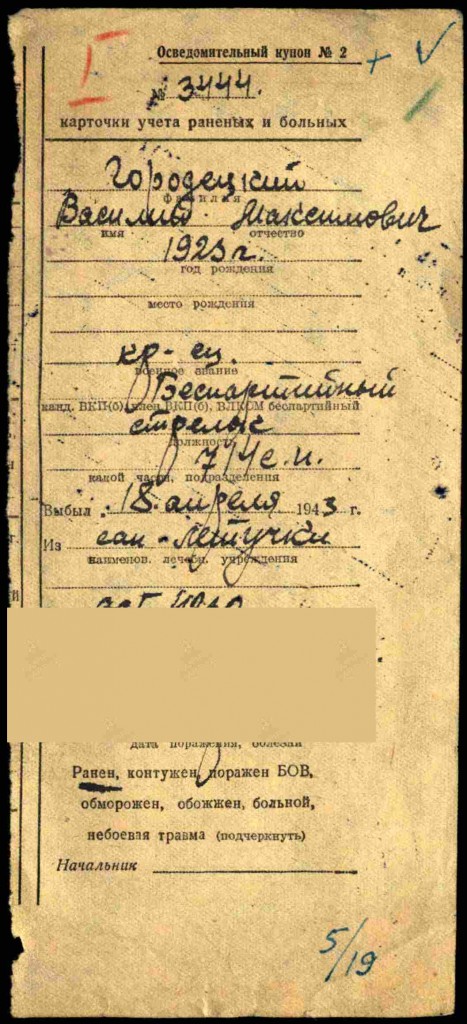 I
Осведомительный купон № 2
№ 3444.
карточки учета раненых и больных
Городецкий
фамилия
Василий Максимович
имя отчество
1923 г.
год рождения
место рождения
кр-ец.
военное звание
Беспартийный
канд. ВКП(б), член ВКП(б), ВЛКСМ беспартийный
стрелок
должность
714 с.п.
какой части, подразделения
Выбыл 18 апреля 1943 г.
Из сан-летучки
наименов. лечебн. учреждения
дата поражения, болезни
Ранен, контужен, поражен БОВ,
обморожен, обожжен, больной,
небоевая травма (подчеркнуть)
Начальник
5/19